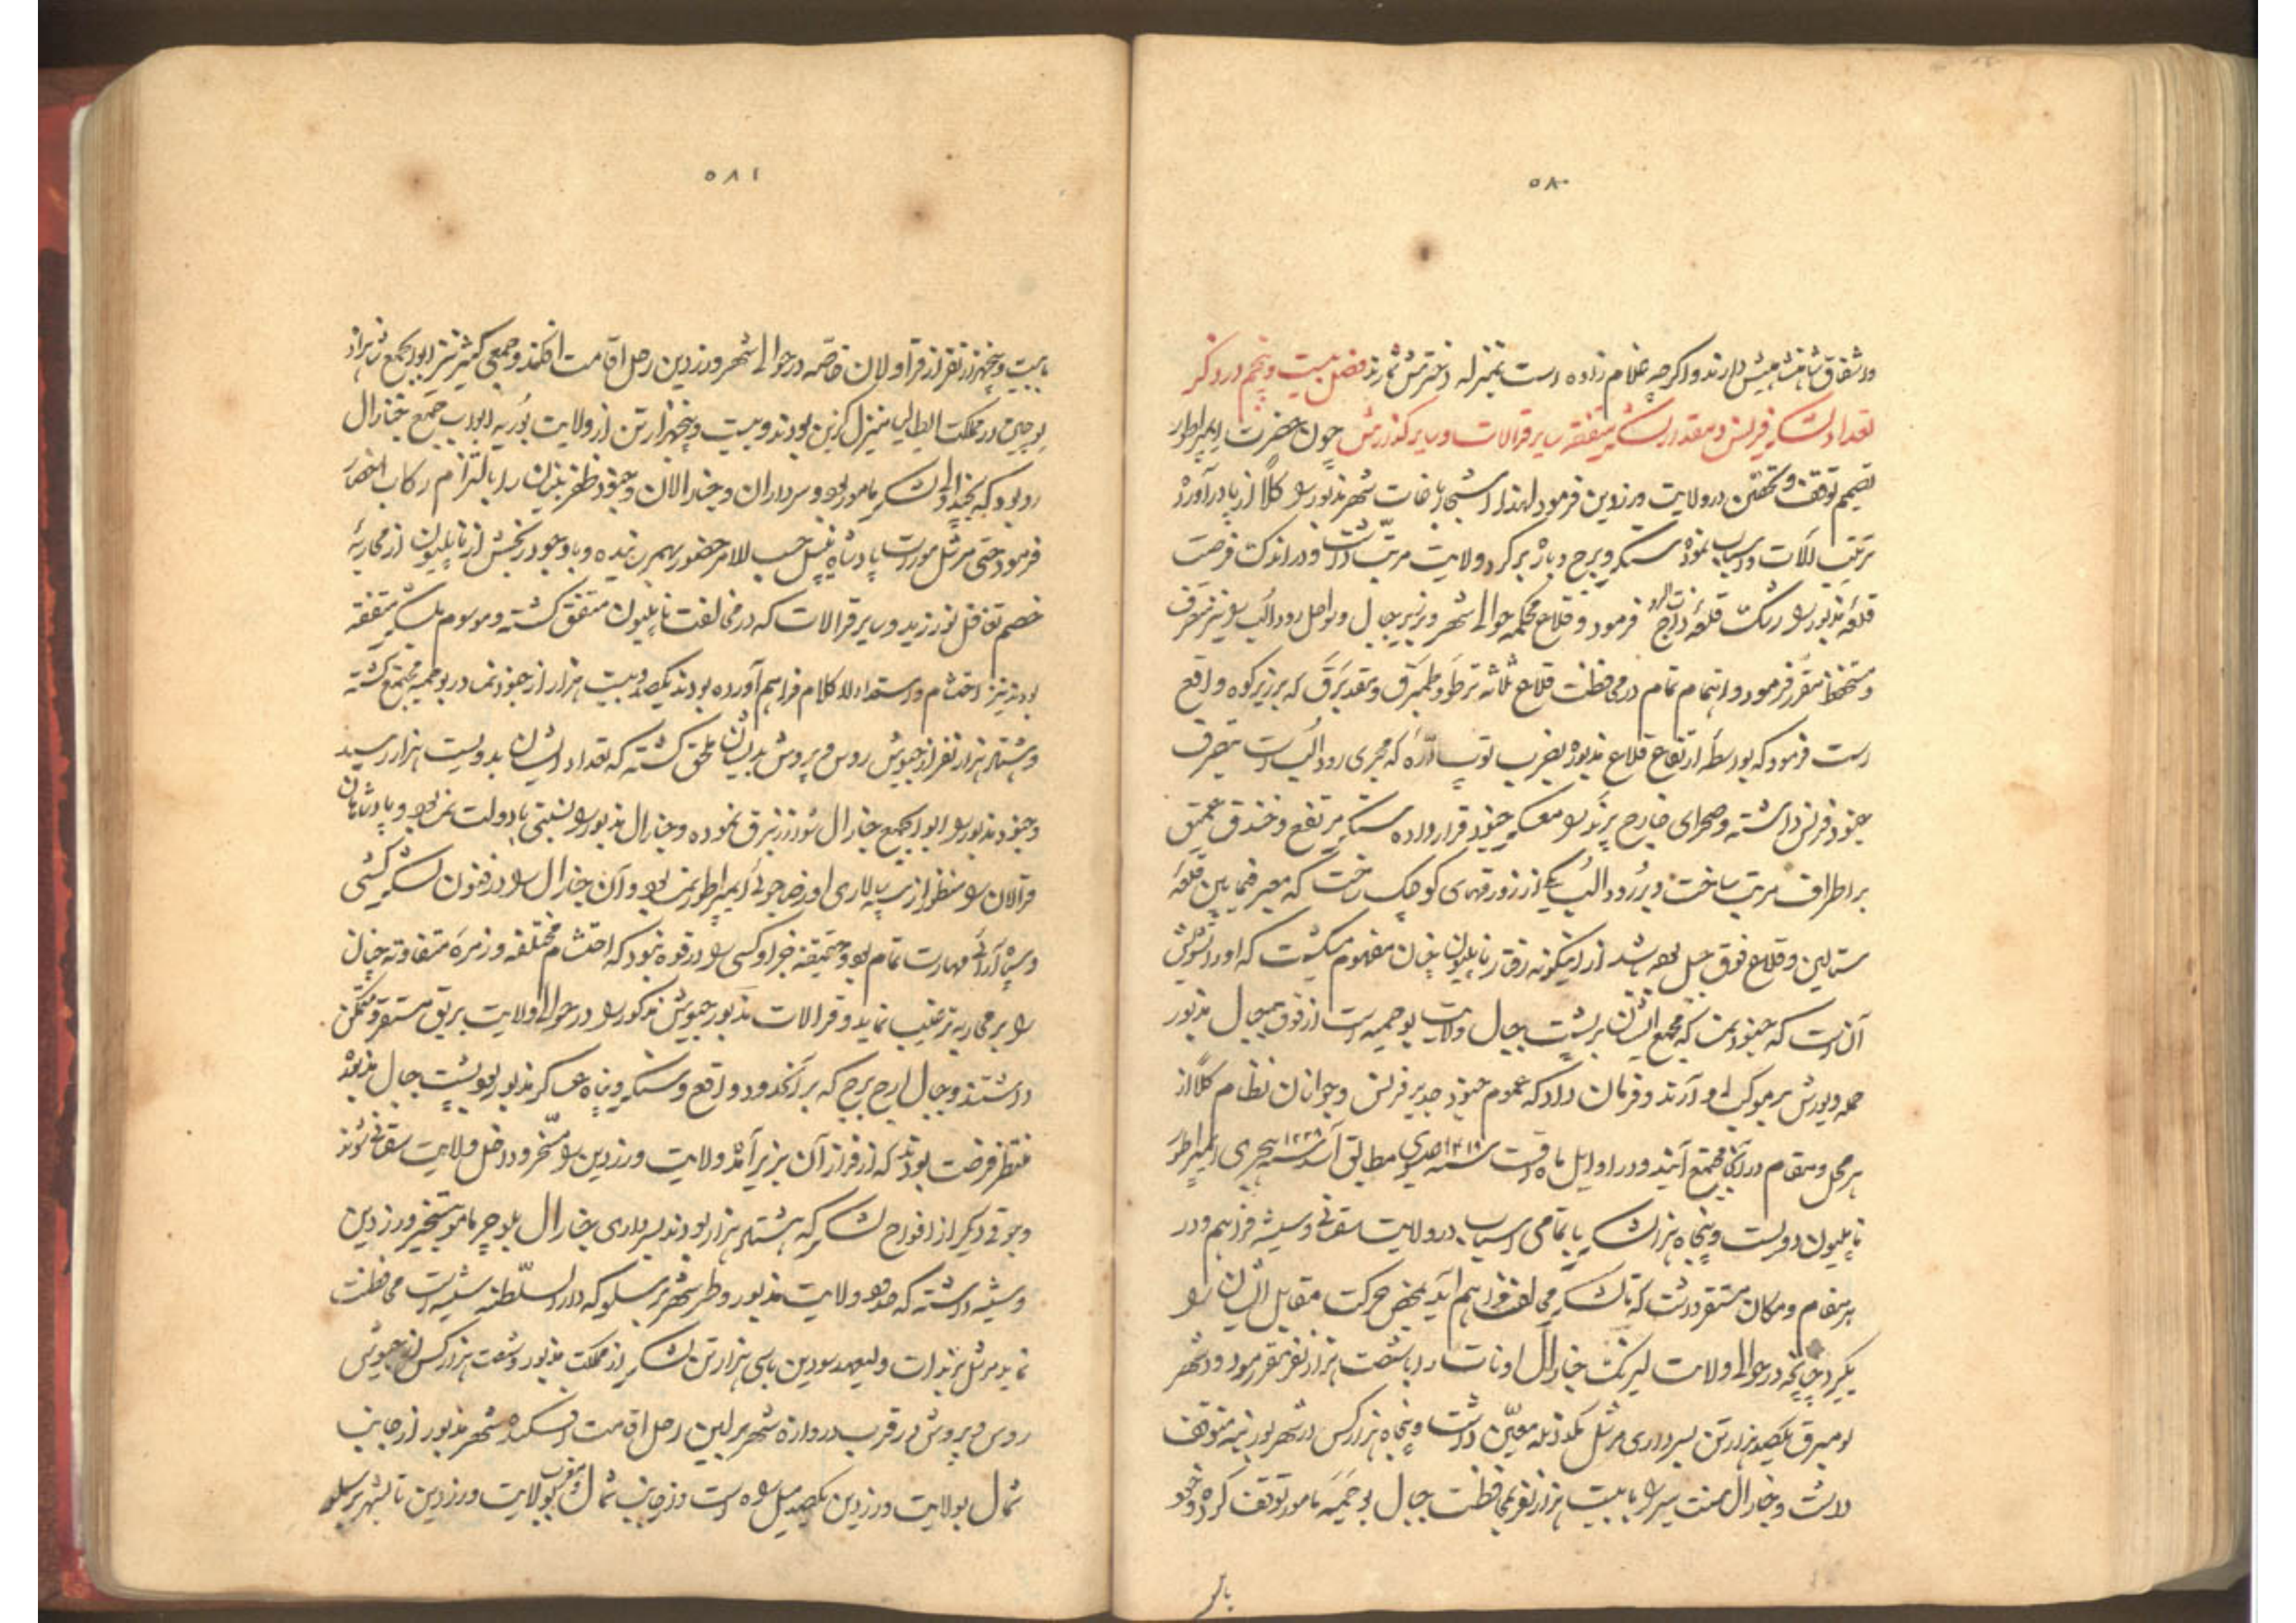 ۵۸۰
و اشفاق شاهنشاهیش دارند و اگرچه غلام زاده است بمنزله دخترش شمارند فصل بیست و پنجم در ذکر
تعداد لشکر فرنس و مقدار لشکر متفقه سایر قرالات و سایر گذارش چون حضرت ایمپراطور
تصمیم توقف و تحصّن در ولایت درزدین فرمود لهذا اشجار باغات شهر مذبور را کلاً از پا درآورد
ترتیب آلات و اسباب نموده سنگر و برج و باره برگرد ولایت مرتب داشت و در اندک فرصت
قلعه مذبور را رشک قلعه فرمود و قلاع محکمه حوالی شهر و زیر جبال و سواحل رود الب را نیز متصرف
و مستحفظ مقرر فرمود و اهتمام تمام در محافظت قلاع ثلاثه ترطو و طمبرق و تقدبرق که بر زبر کوه واقع
است فرمود که بواسطه ارتفاع قلاع مذبوره بضرب توپ اداره که مجری رود الب است متصرف
جنود فرنس داشته و صحرای خارج پرند را معسکر جنود قرار داده سنگر مرتفع و خندق عمیق
بر اطراف مرتب ساخت و بر رود الب پلی از زورقهای کوچک ساخت که معبر فیمابین قلعه
ستالین و قلاع فوق جبل بوده باشد از اینگونه رفتار ناپلیون چنان مفهوم میگشت که او را تشویش
آن است که جنود نمسه که مجمع ایشان بر پشت جبال ولایت بوحمیه است از فوق جبال مذبور
حمله و یورش بر موکب او آرند و فرمان داد که عموم جنود جدید فرنس و جوانان نظام کلاً از
هر محل و مقام در آنجا مجتمع آیند و در اوایل ماه اقت سنه ۱۸۱۳ عیسوی مطابق سنه ۱۲۲۸ هجری ایمپراطور
ناپلیون دویست و پنجاه هزار لشکر با تمامی اسباب در ولایت سقانی و سیشه فراهم و در
هر مقام و مکان مستقر داشت که تا لشکر مخالف فراهم آید بمحض حرکت مقابل ایشان را
بگیرد چنانچه در حوالی ولایت لیزنک جنارال اونات را با شصت هزار نفر مقرر فرمود و در شهر
لومبرق یکصد هزار تن بسرداری مرشل مکدنله معین داشت و پنجاه هزار کس در شهر بوزنیه متوقف
داشت و جنارال سنت سیر را با بیست هزار نفر بمحافظت جبال بوحمیه مامور توقف کرده و خود
با
۵۸۱
با بیست و پنجهزار نفر از قراولان خاصه در حوالی شهر درزدین رحل اقامت افکند و جمعی کثیر نیز ابوابجمع شاهزاده
بوجین در مملکت ایطالیا منزل گزین بودند و بیست و پنجهزار تن از ولایت بوریه ابوابجمع جنارال
روبود که بتجدید لشکر مامور بود و سرداران و جنرالان و جنود ظفر بنیان را بالتزام رکاب احضار
فرمود حتی مرشل مورات پادشاه نپل حسب الامر حضور بهم رسانیده و با وجود رنجش از ناپلیون از محاربه
خصم تغافل نورزید و سایر قرالات که در مخالفت ناپلیون متفق گشته و موسوم بلشکر متفقه
بودند نیز احتشام و استعداد لا کلام فراهم آورده بودند یکصد و بیست هزار از جنود نمسه در بوحمیه مجتمع گشته
و هشتاد هزار نفر از جیوش روس و پروش بدیشان ملحق گشته که تعداد ایشان بدویست هزار رسید
و جنود مذبور را ابوابجمع جنارال شوارزنبرق نموده و جنارال مذبور را نسبتی با دولت نمسه بود و پادشاهان
قرالان را منظور از سپه سالاری او رضاجوئی ایمپراطور نمسه بود و آن جنارال را در فنون لشکر کشی
و سپاه آرائی مهارت تمام بود و حقیقة جز او کسی را در قوه نبود که احتشام مختلفه و زمره متفاوته چنان
را بر محاربه ترغیب نماید و قرالات مذبور جیوش مذکور را در حوالی ولایت بریق مستقر و متمکن
داشتند و جبال ارج برج که بر آنحدود واقع و سنگر و پناه عساکر مذبور بود پشت جبال مذبوره
منتظر فرصت بودند که از فراز آن بزیر آمده ولایت درزدین را مسخر و داخل ولایت سقانی شوند
و جوقی دیگر از افواج لشکر که هشتاد هزار بودند بسرداری جنارال بلوچر مامور تسخیر درزدین
و سیشه داشته که حدود ولایت مذبور و طرف شهر برسلو که دار السلطنه سیشه است محافظت
نماید مرشل برندات ولیعهد سودین با سی هزار تن لشکر از مملکت مذبور و شصت هزار کس از جیوش
روس و پروش در قرب دروازه شهر برلین رحل اقامت افکنده شهر مذبور از جانب
شمال بولایت درزدین یکصد میل راه است و از جانب شمال و مغرب بولایت درزدین تا بشهر برسلو